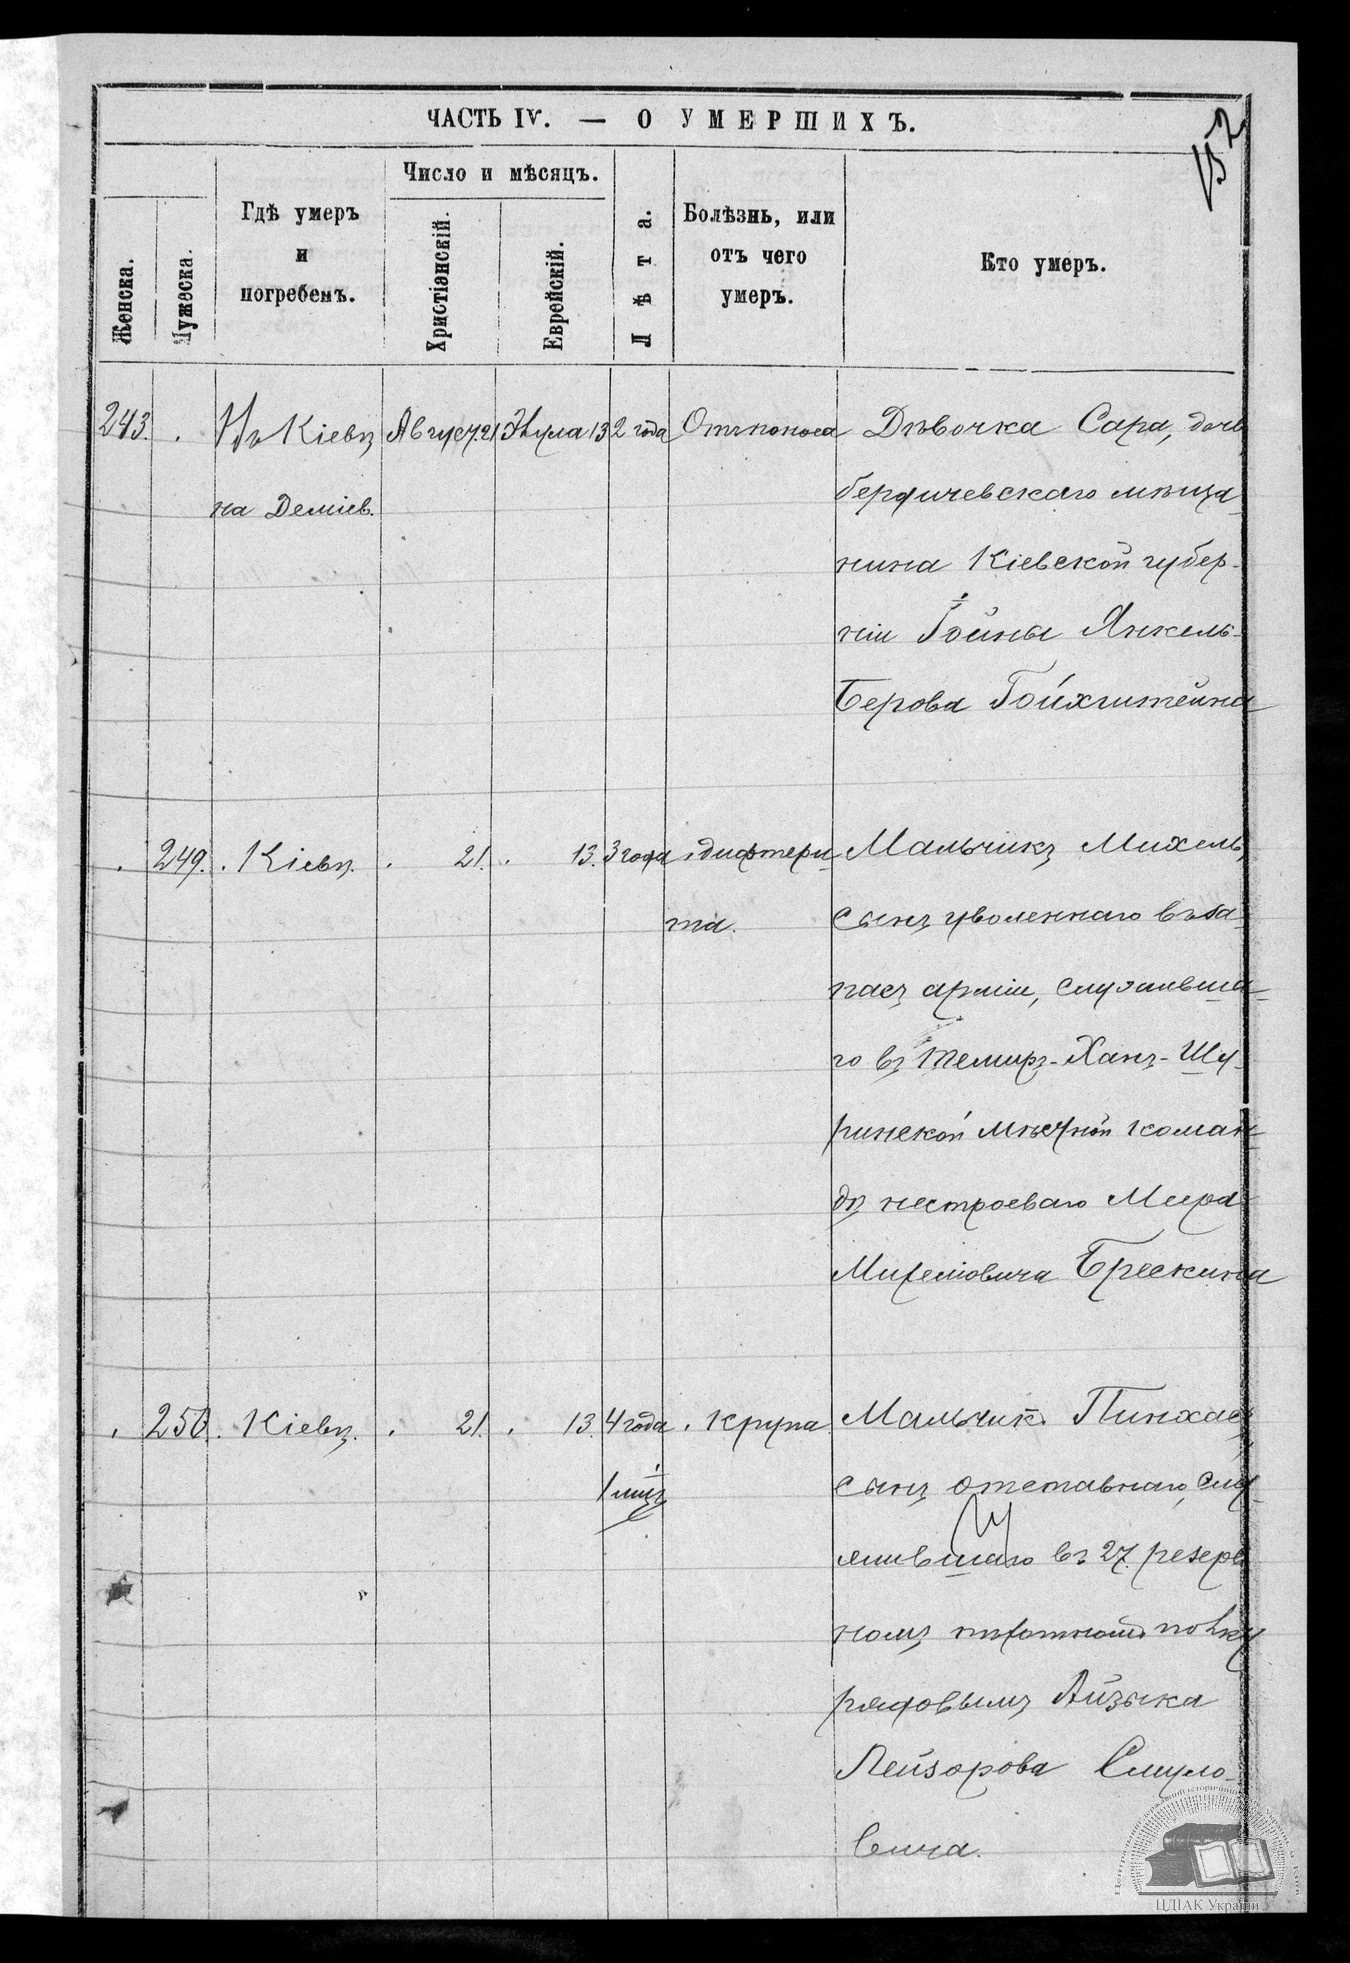 ЧАСТЬ IV. — О УМЕРШИХЪ.
Женска.
Мужеска.
Гдѣ умеръ
и
погребенъ.
Число и мѣсяцъ.
Христіанскій.
Еврейскій.
Лѣта.
Болѣзнь, или
отъ чего
умеръ.
Кто умеръ.
243. . Въ Кіевѣ Август. 21 Элула 13 2 года Отъ поноса Дѣвочка Сара, дочь
на Деміев. бердичевскаго мѣща-
нина Кіевской губер-
ніи Гойны Янкель-
Берова Гойхштейна
. 249. . Кіевѣ. . 21. . 13. 3 года дифтери- Мальчикъ Михель,
та. сынъ уволеннаго въ за-
пасъ арміи, служивша-
го въ Темиръ-Ханъ-Шу-
ринской мѣстной коман-
дѣ нестроеваго Меера
Михелiовича Брескина
. 250. . Кіевѣ. . 21. . 13. 4 года . Крупа Мальчикъ Пинхасъ,
1 мѣц сынъ отставнаго, слу-
жившаго въ 27. резерв
номъ пѣхотномъ полку
рядовымъ Айзыка
Лейзорова Смуло-
вича.
ЦДІАК України